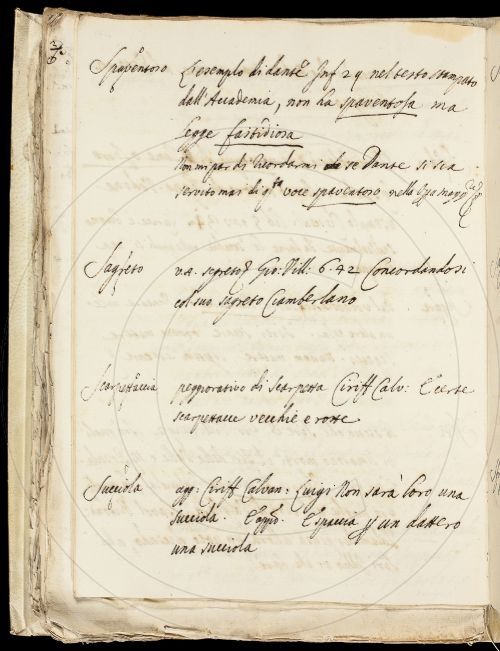 Spaventoso L'esemplo di dante Inf 29 nel testo stampato
dall'Accademia, non ha spaventosa ma
legge fastidiosa
Non mi par di ricordarmi se Dante si sia
servito mai di q.ta voce spaventoso nella
Sagreto v.a. segreto Gio: Vill: 6. 42 Concordandosi
col suo sagreto Ciamberlano
Scarpettaccia peggiorativo di Scarpetta Ciriff Calv: E certe
scarpettacce vecchie e rotte
Succiola agg: Ciriff Calvan: Luigi Non sarà loro una
succiola. E app.o E spaccia p un dattero
una succiola